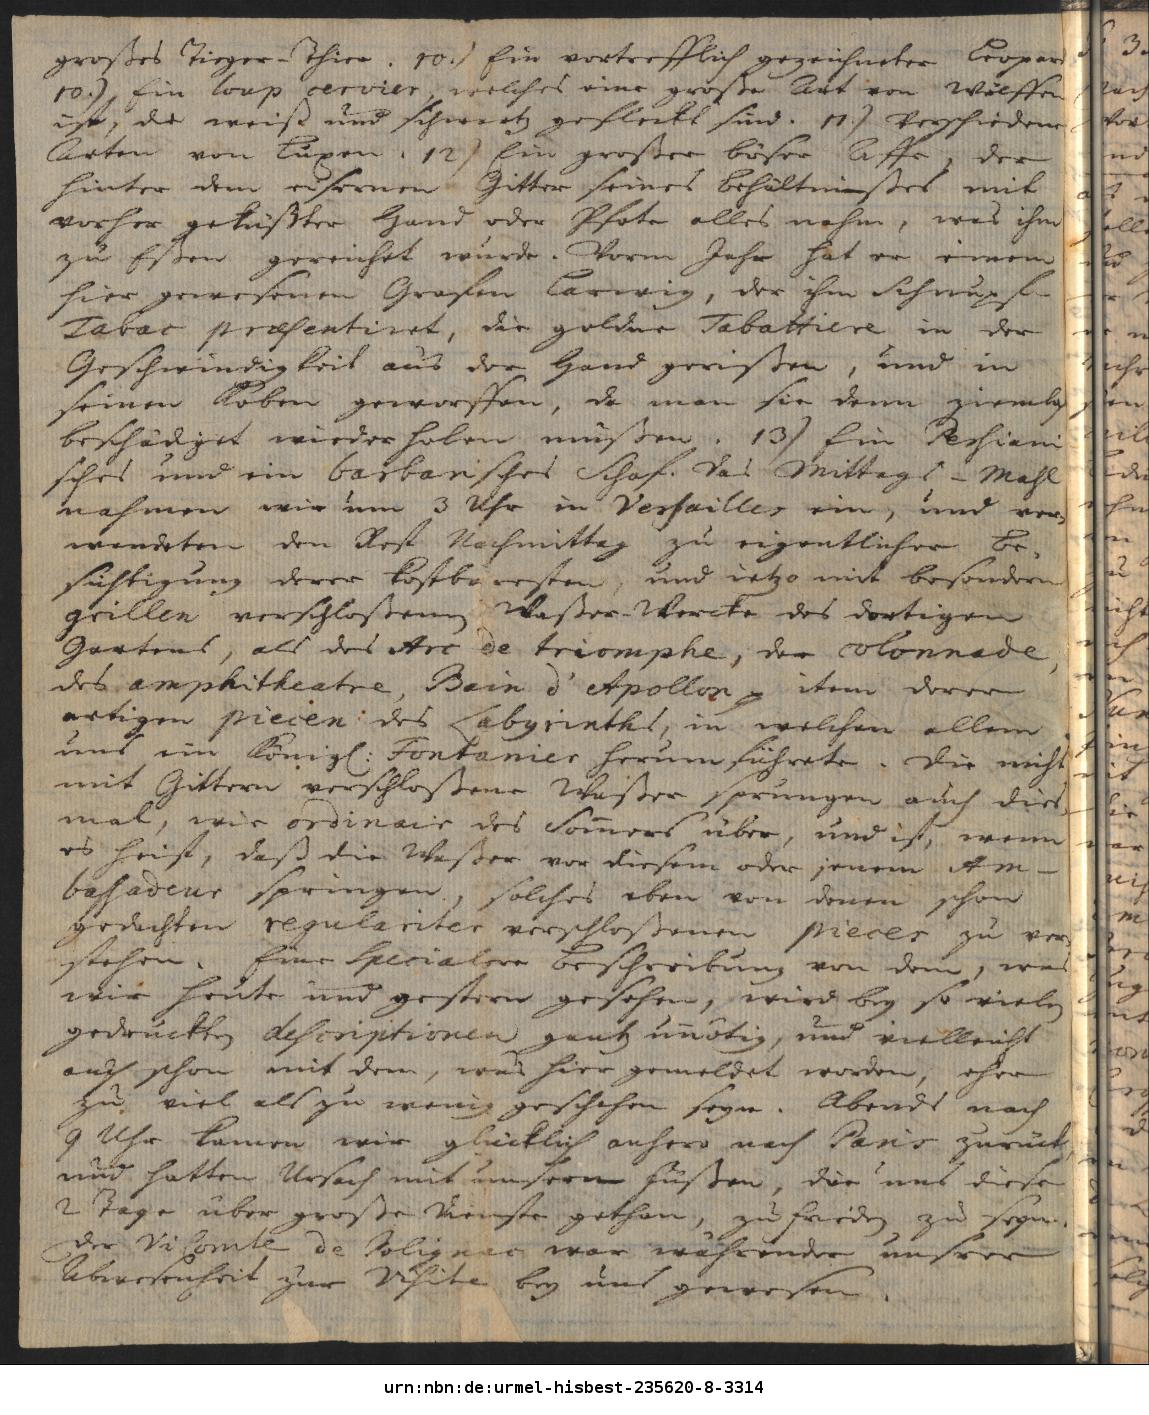 großes Tieger-Thier. 10.) Ein vortrefflich gezeichneter Leopard
10.) Ein loup cervier, welches eine große Art von Wölffen
ist, die weiß und schwartz gefleckt sind. 11.) Verschiedene
Arten von Luxen. 12) Ein großer böser Affe, der
hinter dem eisernen Gitter seines Behältnißes mit
vorher geküßter Hand oder Pfote alles nahm, was ihm
zu Eßen gereichet wurde. Vorm Jahr hat er einem
hier gewesenen Grafen Carwig, der ihm Schnupf-
Tabac præsentiret, die goldne Tabattiere in der
Geschwindigkeit aus der Hand gerißen, und in
seinen Koben geworffen, da man sie denn ziemlich
beschädiget wieder holen müßen. 13) Ein Persiani-
sches und ein barbarisches Schaf. Das Mittags-Mahl
nahmen wir um 3 Uhr in Versailles ein, und ver-
wendeten den Rest Nachmittag zu eigentlicher Be-
sichtigung derer kostbaresten, und ietzo mit besondern
grillen verschloßenen Waßer-Wercke des dortigen
Gartens, als des Arc de triomphe, der colonnade,
des amphitheatre, Bain d'Apollon, item derer
artigen piecen des Labyrinths, in welchen allem
uns ein Königl: Fontanier herum führete. Die nicht
mit Gittern verschloßene Waßer sprungen auch dies-
mal, wie ordinair des Som̄ers über, und ist, wenn
es heist, daß die Waßer vor diesem oder jenem Am-
bassadeur springen, solches eben von denen schon
gedachten regulariter verschloßenen pieces zu ver-
stehen. Eine specialere Beschreibung von dem, was
wir heute und gestern gesehen, wird bey so vielen
gedruckten descriptionen gantz un̄ötig, und vielleicht
auch schon mit dem, was hier gemeldet worden, eher
zu viel als zu wenig geschehen seyn. Abends nach
9 Uhr kamen wir glücklich anhero nach Paris zurück,
und hatten Ursach mit unsern Füßen, die uns diese
2 Tage über große Dienste gethan, zufrieden zu seyn.
Der Vicomte de Polignac war währender unsrer
Abwesenheit zur Visite bey uns gewesen.
urn:nbn:de:urmel-hisbest-235620-8-3314